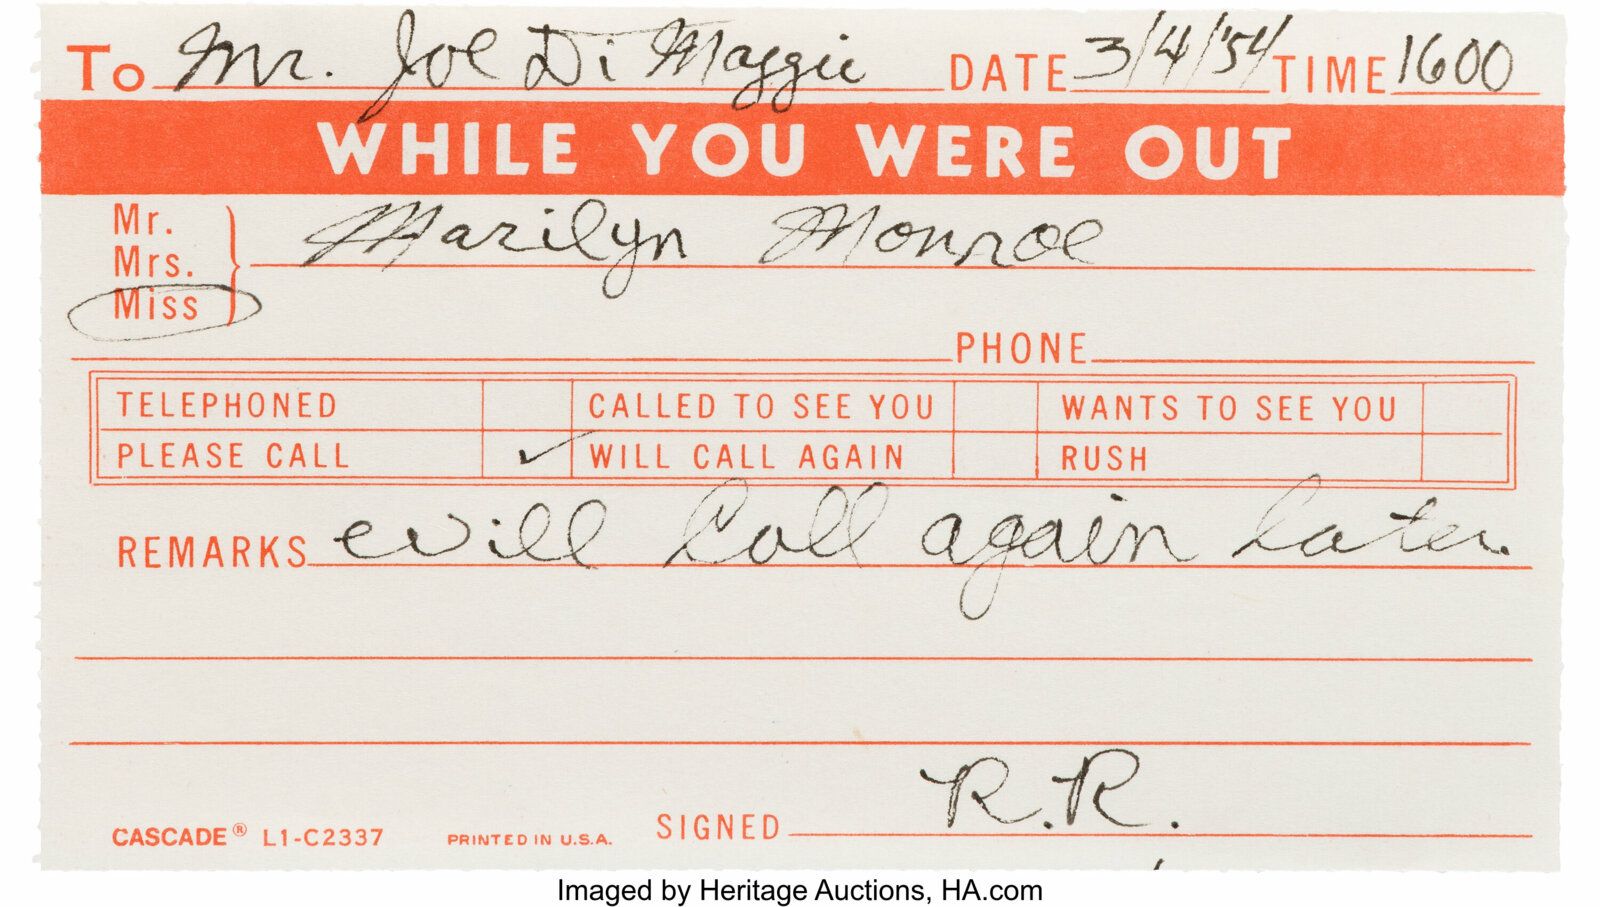 To Mr. Joe Di Maggie DATE 3/4/'54 TIME 1600
WHILE YOU WERE OUT
Mr.
Mrs.
Miss
Marilyn Monroe
PHONE
TELEPHONED CALLED TO SEE YOU WANTS TO SEE YOU
PLEASE CALL ✓ WILL CALL AGAIN RUSH
REMARKS Will Call again later.
SIGNED R.R.
CASCADE® L1-C2337 PRINTED IN U.S.A.
Imaged by Heritage Auctions, HA.com